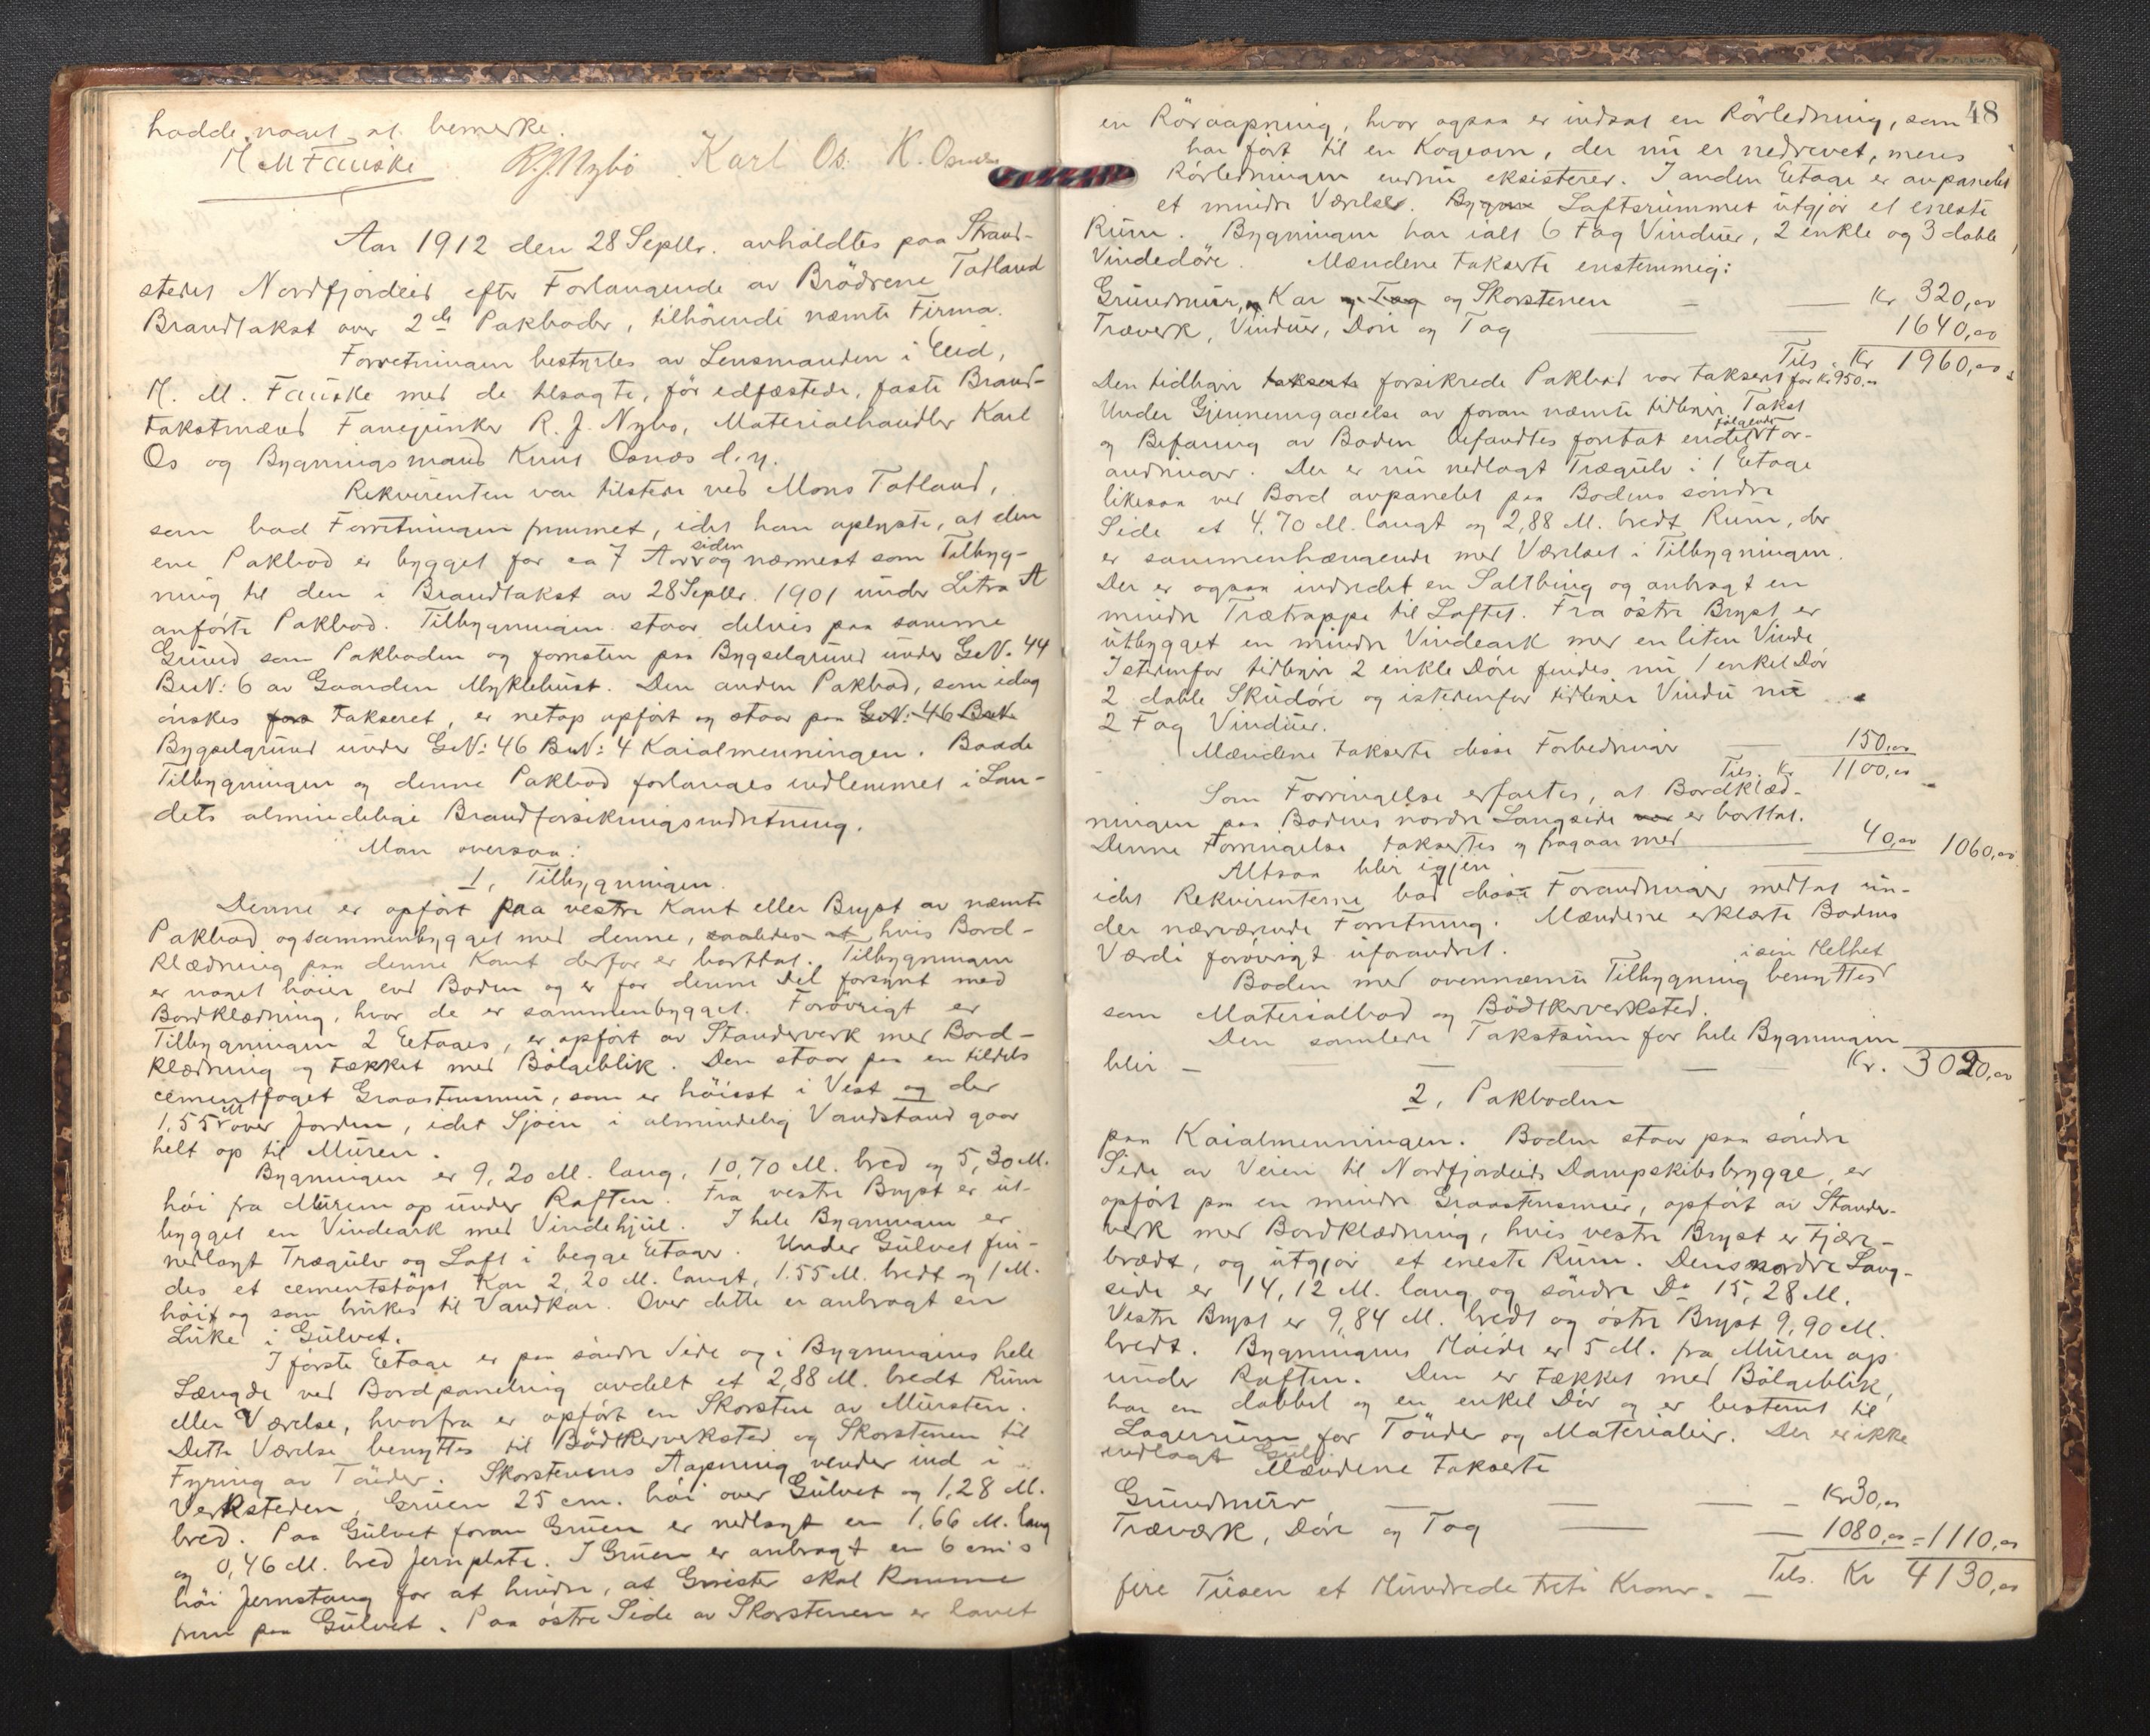 hadde noget at bemerke.
H M Fauske R. J. Nybö Karl Os. K. Osnæs
Aar 1912 den 28 Septbr. avholdtes paa Strand-
stedet Nordfjordeid efter Forlangende av Brödrene Totland
Brandtakst over 2de Pakboder, tilhörende nævnte Firma.
Forretningen bestyrtes av Lensmanden i Eid,
H. M. Fauske med de tilsagte, før edfæstede, faste Brand-
takstmænd Fanejunker R. J. Nybö, Materialhandler Karl
Os og Bygningsmand Knut Osnæs d. y.
Rekvirenten var tilstede ved Mons Totland,
som bad Forretningen fremmet, idet han oplyste, at den
ene Pakbod er bygget for ca 7 Aar siden og nærmest som Tilbyg-
ning til den i Brandtakst av 28 Septbr. 1901 under Litra A
anførte Pakbod. Tilbygningen staar delvis paa samme
Grund som Pakboden og forresten paa Bygselgrund under G.N. 44
B.N: 6 av Gaarden Myklebust. Den anden Pakbod, som idag
ønskes takseret, er netop opført og staar paa G.N: 46 B.N.
Bygselgrund under G.N: 46 B.N: 4 Kaialmenningen. Baade
Tilbygningen og denne Pakbod forlanges indlemmet i Lan-
dets almindelige Brandforsikringsindretning.
Man oversaa:
1, Tilbygningen.
Denne er opført paa vestre Kant eller Bryst av nævnte
Pakbod og sammenbygget med denne, saaledes at hvis Bord-
klædning paa denne Kant derfor er borttat. Tilbygningen
er noget høier end Boden og er for denne Del forsynt med
Bordklædning, hvor de er sammenbygget. Forövrigt er
Tilbygningen 2 Etages, er opført av Standerverk med Bord-
klædning og tækket med Bölgeblik. Den staar paa en tildels
cementfuget Graastensmur, som er høiest i Vest og der
1,55 M over Jorden, idet Sjøen i almindelig Vandstand gaar
helt op til Muren.
Bygningen er 9,20 M. lang, 10,70 M. bred og 5,30 M.
høi fra Muren op under Raften. Fra vestre Bryst er ut-
bygget en Vindeark med Vindehjul. I hele Bygningen er
nedlagt Trægulv og Loft i begge Etager. Under Gulvet fin-
des et cementstøpt Kar 2,20 M. langt, 1.55 M. bredt og 1 M.
høit og som brukes til Vandkar. Over dette er anbragt en
Luke i Gulvet.
I første Etage er paa søndre Side og i Bygningens hele
Længde ved Bordpaneling avdelt et 2,88 M. bredt Rum
eller Værelse, hvorfra er opført en Skorsten av Mursten.
Dette Værelse benyttes til Bödtkerverksted og Skorstenen til
Fyring av Tönder. Skorstenens Aapning vender ind i
Verksteden, Gruen 25 cm. høi over Gulvet og 1,28 M.
bred. Paa Gulvet foran Gruen er nedlagt en 1,66 M. lang
og 0,46 M. bred Jernplate. I Gruen er anbragt en 6 cm's
høi Jernstang for at hindre, at Gnister skal komme
frem paa Gulvet. Paa østre Side av Skorstenen er lavet
48
en Röraapning, hvor ogsaa er indsat en Rörledning, som
har ført til en Kogeovn, der nu er nedrevet, mens
Rørledningen endnu eksisterer. I anden Etage er avpanelet
et mindre Værelse. Loftsrummet utgjør et eneste
Rum. Bygningen har ialt 6 Fag Vinduer, 2 enkle og 3 doble
Vindedöre. Mændene takserte enstemmig:
Grundmur, og Kar og Tag og Skorstenen — Kr 320,00
Træverk, Vinduer, Döre og Tag — 1640,00
Tils. Kr 1960,00
Den tidligere takserte forsikrede Pakbod var takseret for Kr 950.00
Under Gjennemgaaelse av foran nævnte tidligere Takst
og Befaring av Boden befandtes foretat endel følgende For-
andringer. Der er nu nedlagt Trægulv i 1 Etage
likesaa ved Bord avpanelet paa Bodens søndre
Side et 4.70 M. langt og 2,88 M. bredt Rum, der
er sammenhængende med Værelset i Tilbygningen.
Der er ogsaa indredet en Saltbing og anbragt en
mindre Trætrappe til Loftet. Fra østre Bryst er
utbygget en mindre Vindeark med en liten Vinde
Istedenfor tidligere 2 enkle Döre findes nu 1 enkel Dör
2 doble Skudöre og istedenfor tidligere Vindu nu
2 Fag Vinduer.
Mændene takserte disse Forbedringer — 150,00
Tils. Kr 1100,00
Som Forringelse erfartes, at Bordklæd-
ningen paa Bodens nordre Langside er borttat.
Denne Forringelse taksertes og fragaar med — 40,00 1060,00
Altsaa blir igjen
idet Rekvirenterne bad disse Forandringer medtat un-
der nærværende Forretning. Mændene erklærte Bodens
Værdi forövrigt uforandret.
Boden med ovennævnte Tilbygning benyttes i sin Helhet
som Materialbod og Bödtkerverksted.
Den samlede Takstsum for hele Bygningen
blir — Kr. 3020,00
2, Pakboden
paa Kaialmenningen. Boden staar paa søndre
Side av Veien til Nordfjordeids Dampskibsbrygge, er
opført paa en mindre Graastensmur, opført av Stander-
verk med Bordklædning, hvis vestre Bryst er Fjære-
brædt, og utgjør et eneste Rum. Dens nordre Lang-
side er 14,12 M. lang og søndre Do 15,28 M.
Vestre Bryst er 9,84 M. bredt og østre Bryst 9,90 M.
bredt. Bygningens Høide er 5 M. fra Muren op
under Raften. Den er tækket med Bölgeblik,
har en dobbel og en enkel Dör og er bestemt til
Lagerrum for Tönder og Materialier. Der er ikke
indlagt Gulv.
Mændene takserte
Grundmur — Kr 30,00
Træværk, Döre og Tag — 1080,00 = 1110,00
Tils. Kr 4130,00
fire Tusen et Hundrede treti Kroner. —